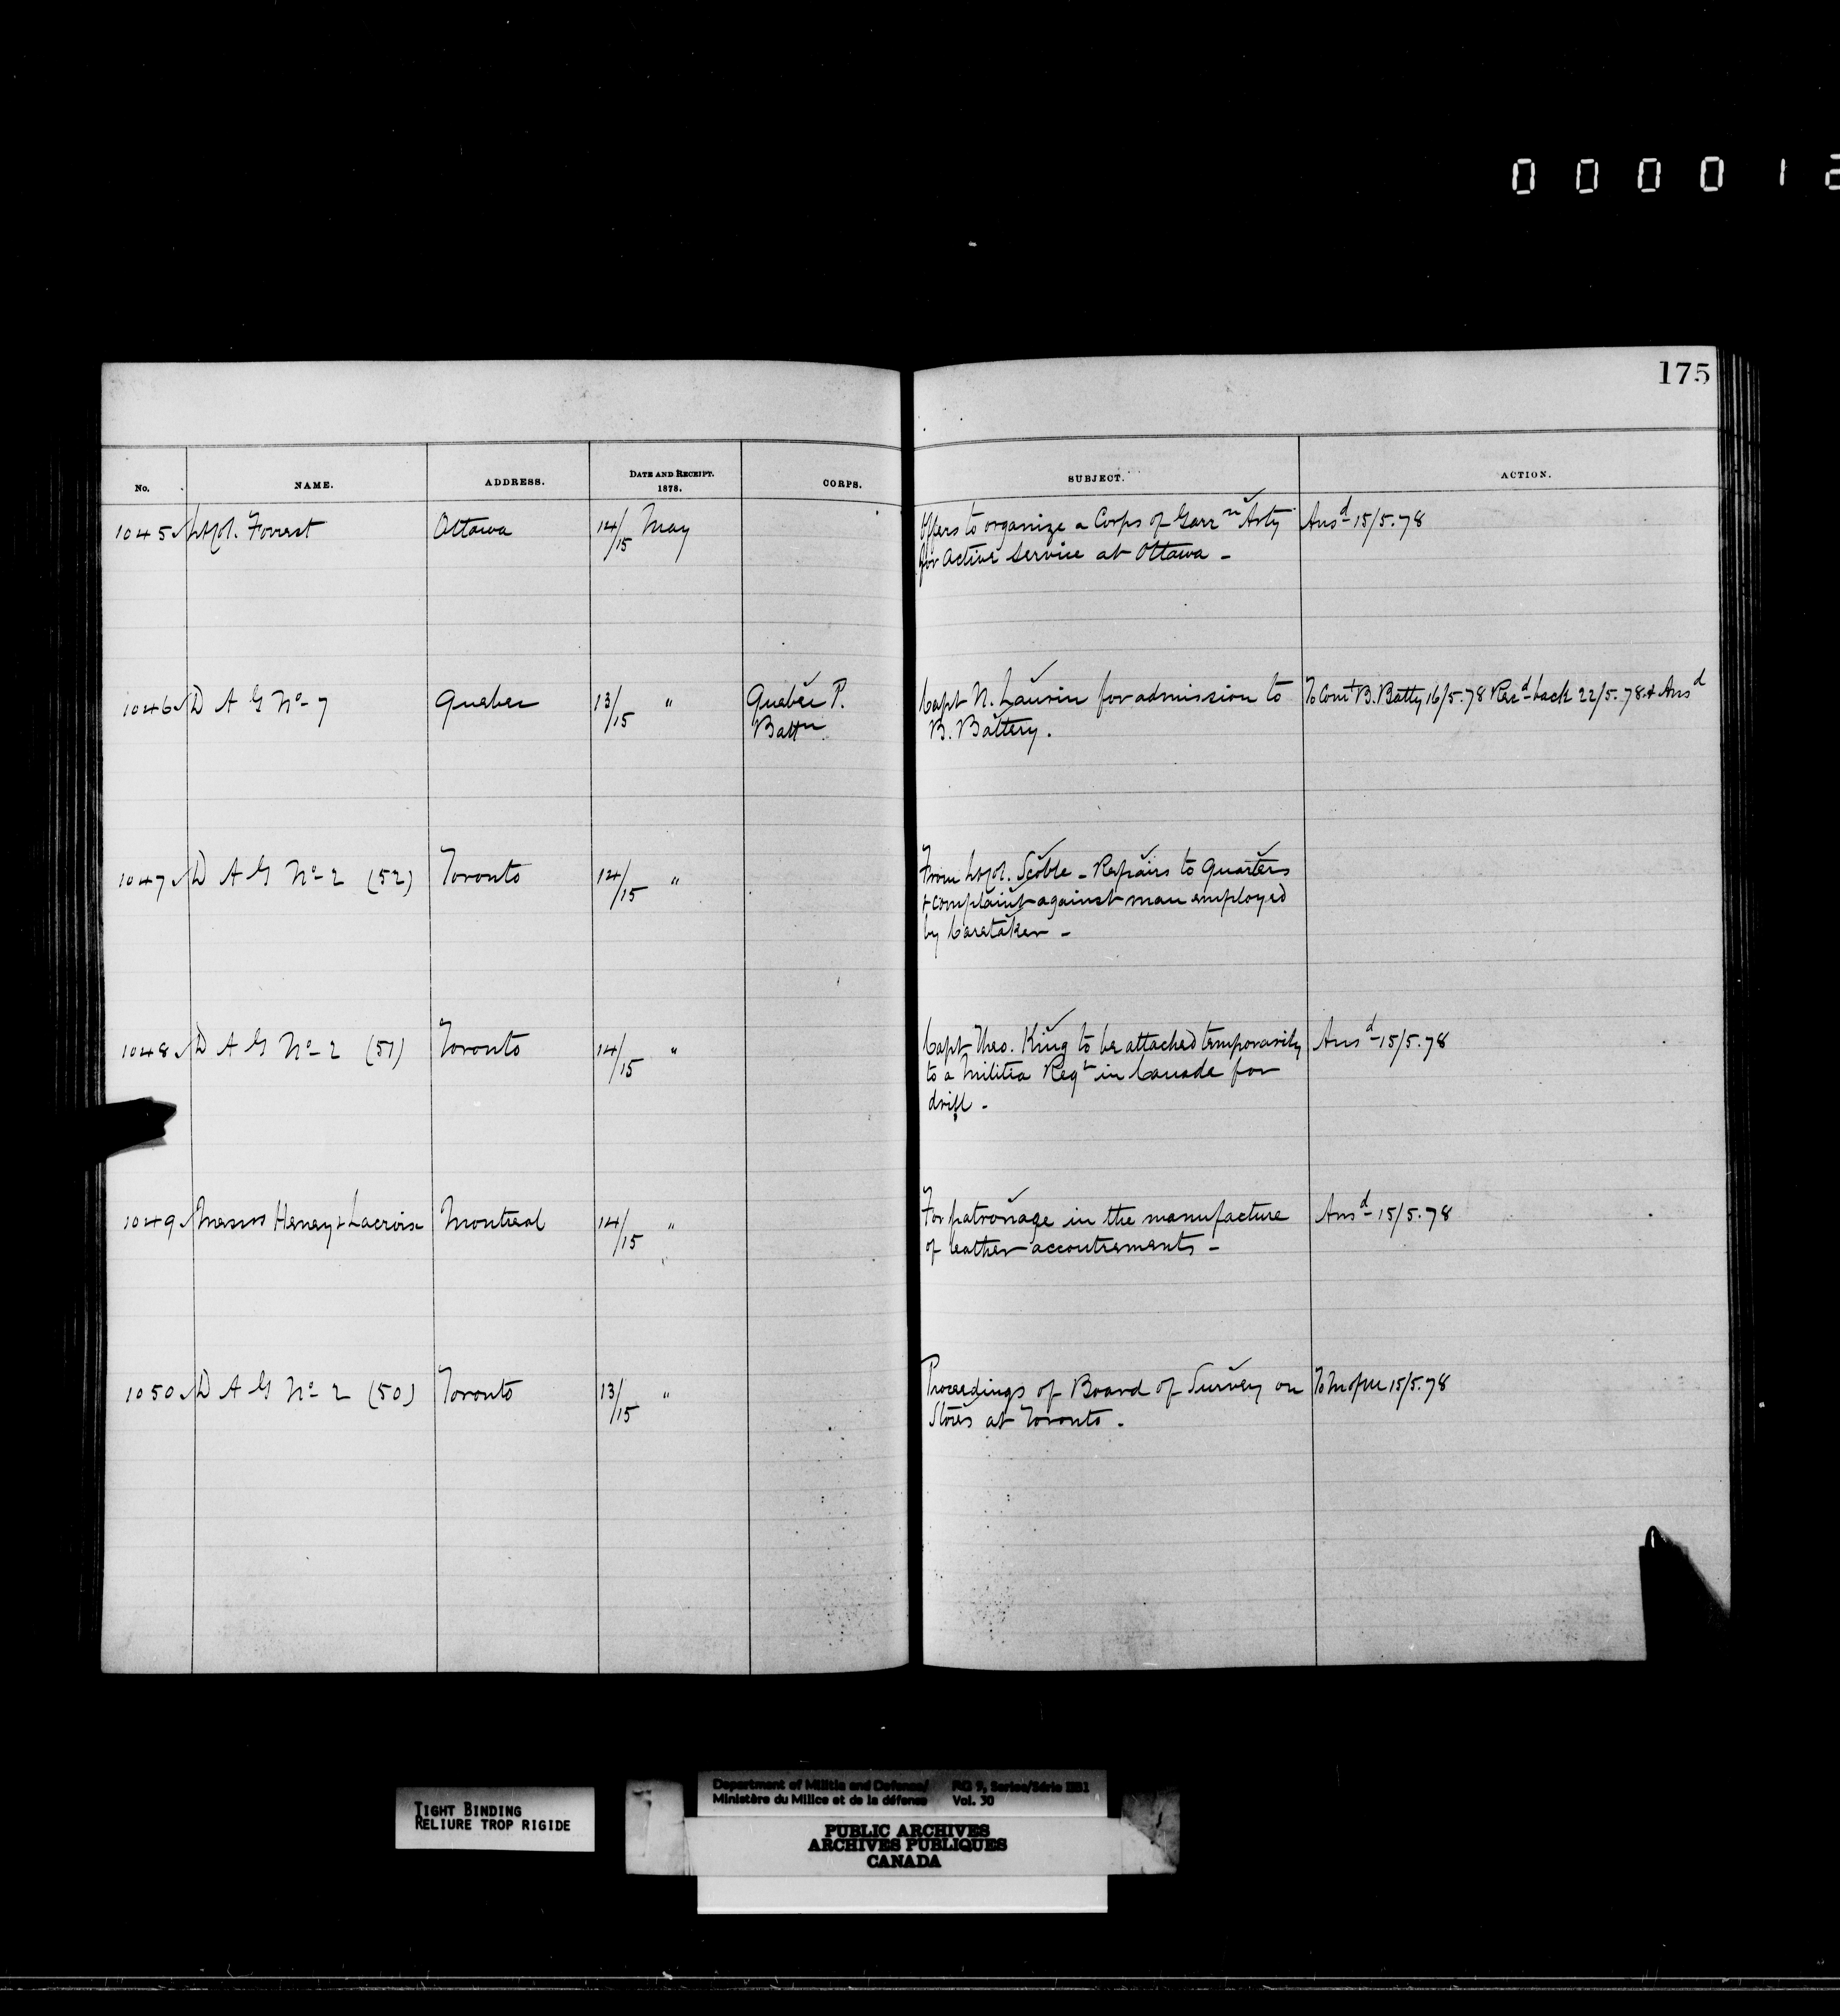 0 0 0 0 1 2
175
No. NAME. ADDRESS. DATE AND RECEIPT. 1878. CORPS. SUBJECT. ACTION.
1045 Lt Col. Forrest Ottawa 14/15 May Offers to organize a Corps of Garrn Arty Ansd 15/5.78
for Active Service at Ottawa -
1046 D A G No 7 Quebec 13/15 " Quebec P. Capt N. Laurin for admission to To Comt B. Batty 16/5.78 Recd back 22/5.78 & Ansd
Battn B. Battery.
1047 D A G No 2 (52) Toronto 14/15 " From Lt Col. Scoble - Repairs to Quarters
& complaint against man employed
by Caretaker -
1048 D A G No 2 (51) Toronto 14/15 " Capt Theo. King to be attached temporarily Ansd 15/5.78
to a Militia Regt in Canada for
drill -
1049 Messrs Heney & Lacroix Montreal 14/15 " For patronage in the manufacture Ansd 15/5.78
of leather accoutrements -
1050 D A G No 2 (50) Toronto 13/15 " Proceedings of Board of Survey on To M of M 15/5.78
Stores at Toronto -
TIGHT BINDING
RELIURE TROP RIGIDE
Department of Militia and Defence/ RG 9, Series/Série IIB1
Ministère du Milice et de la défense Vol. 30
PUBLIC ARCHIVES
ARCHIVES PUBLIQUES
CANADA